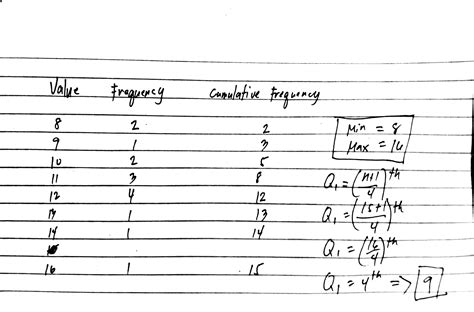 Value Frequency Cumulative Frequency
8 2 2
9 1 3
10 2 5
11 3 8
12 4 12
13 1 13
14 1 14
16 1 15
Min = 8
Max = 16
Q₁ = (n+1/4)th
Q₁ = (15+1/4)th
Q₁ = (16/4)th
Q₁ = 4th => 9